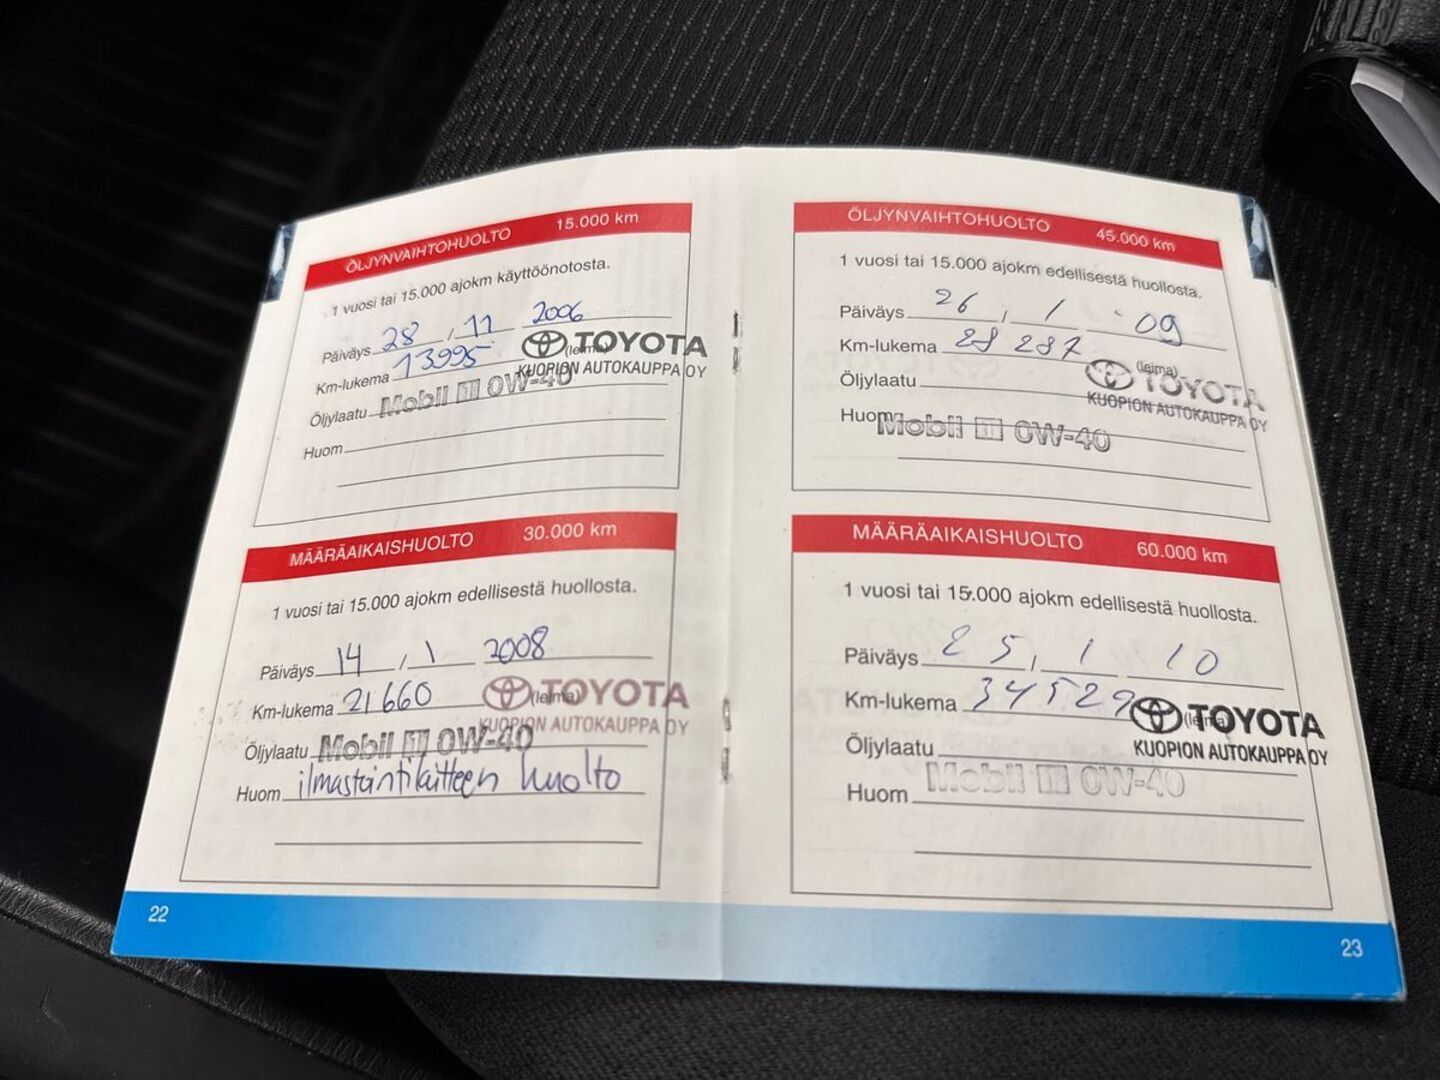 ÖLJYNVAIHTOHUOLTO 15.000 km
1 vuosi tai 15.000 ajokm käyttöönotosta.
Päiväys 28 , 11 2006
Km-lukema 13995 (leima) TOYOTA
KUOPION AUTOKAUPPA OY
Öljylaatu Mobil 1 0W-40
Huom
MÄÄRÄAIKAISHUOLTO 30.000 km
1 vuosi tai 15.000 ajokm edellisestä huollosta.
Päiväys 14 , 1 2008
Km-lukema 21660 (leima) TOYOTA
KUOPION AUTOKAUPPA OY
Öljylaatu Mobil 1 0W-40
Huom ilmastointilaitteen huolto
22
ÖLJYNVAIHTOHUOLTO 45.000 km
1 vuosi tai 15.000 ajokm edellisestä huollosta.
Päiväys 26 , 1 09
Km-lukema 28 287
(leima) TOYOTA
Öljylaatu
KUOPION AUTOKAUPPA OY
Huom Mobil 1 0W-40
MÄÄRÄAIKAISHUOLTO 60.000 km
1 vuosi tai 15.000 ajokm edellisestä huollosta.
Päiväys 25 , 1 10
Km-lukema 34529
(leima) TOYOTA
Öljylaatu
KUOPION AUTOKAUPPA OY
Mobil 1 0W-40
Huom
23